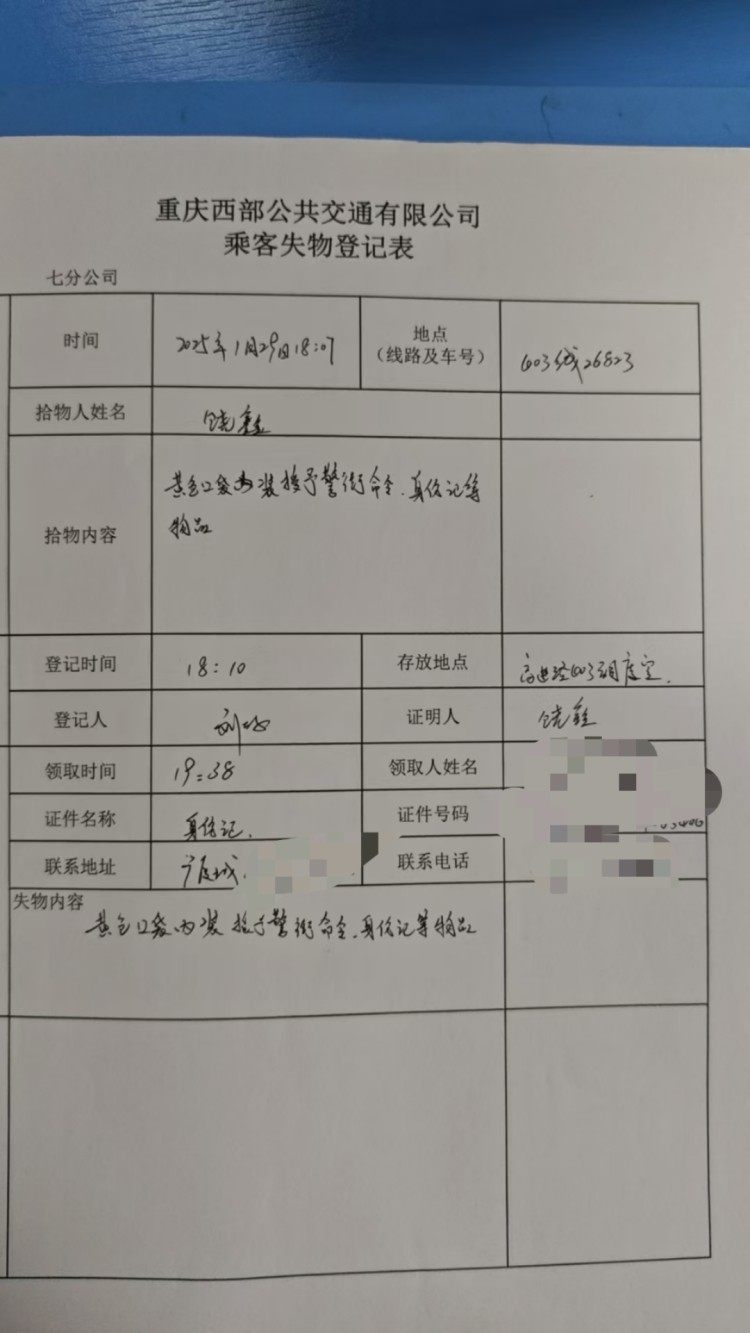 重庆西部公共交通有限公司
乘客失物登记表
七分公司
时间 2025年1月29日18:07 地点
（线路及车号） 603线26823
拾物人姓名 饶鑫
拾物内容 黄色口袋内装授予警衔命令、身份记等
物品
登记时间 18:10 存放地点 603调度室.
登记人 刘 证明人 饶鑫
领取时间 19:38 领取人姓名
证件名称 身份记. 证件号码
联系地址 联系电话
失物内容
黄色口袋内装授予警衔命令、身份记等物品